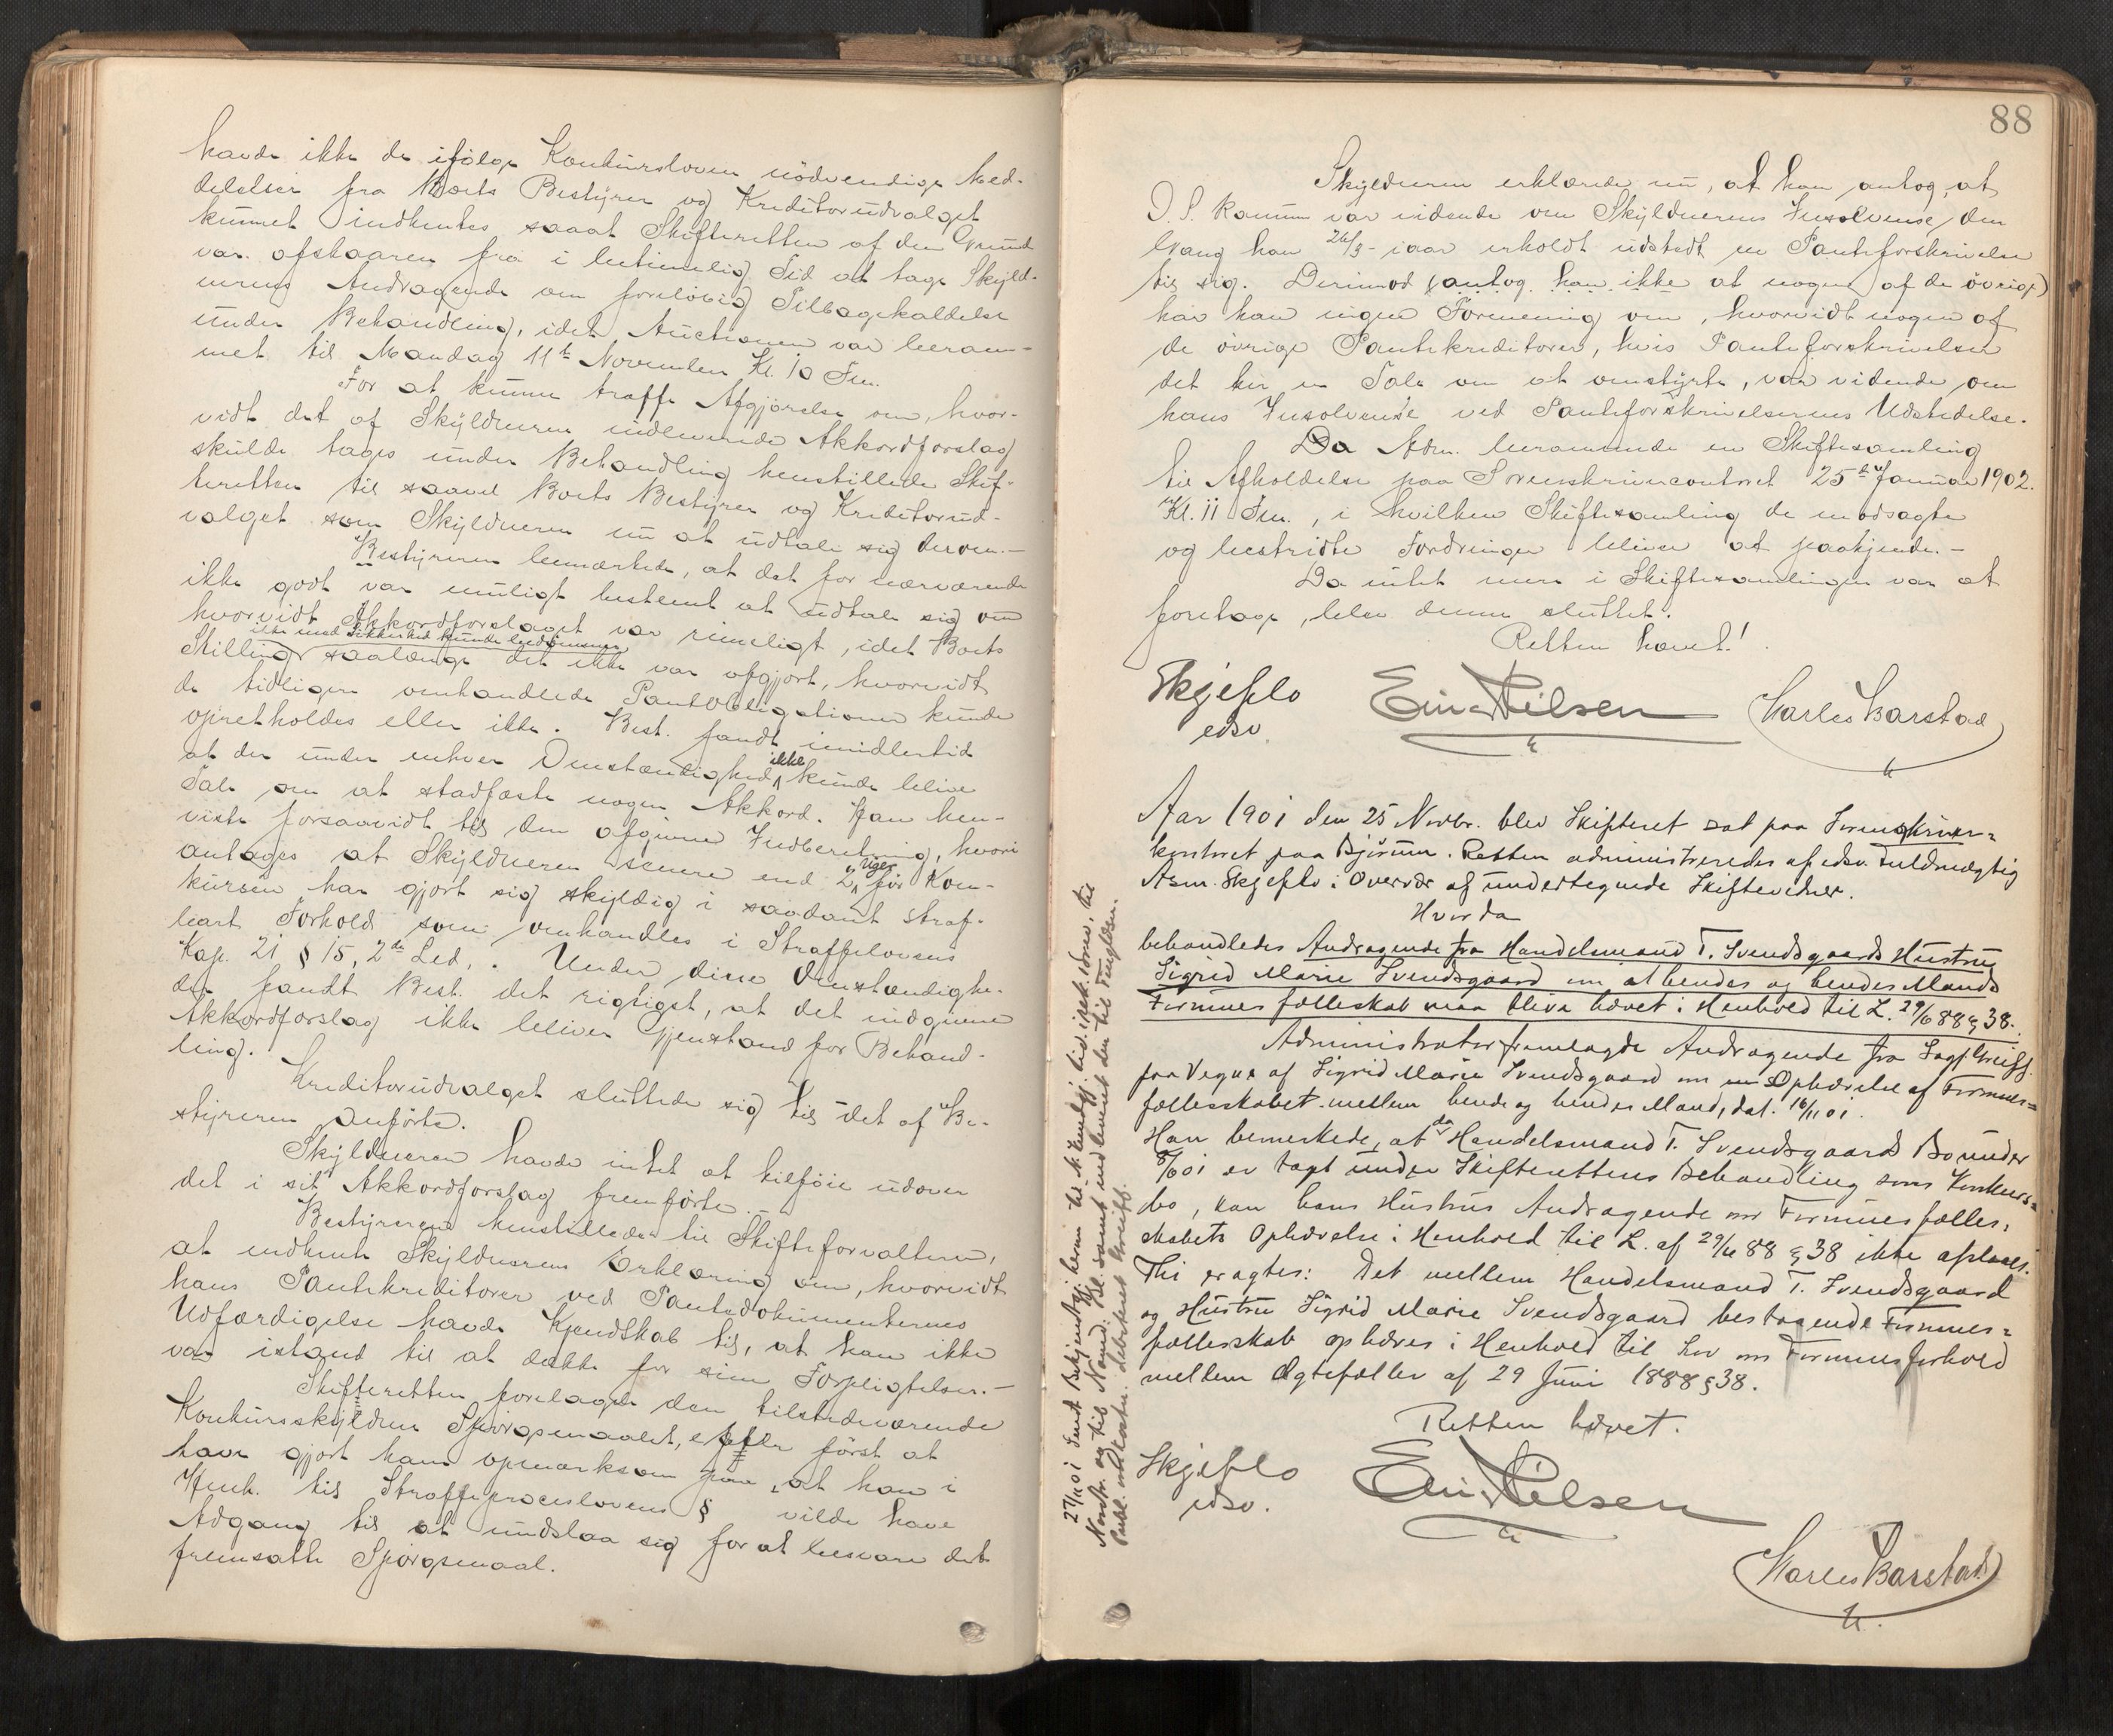 havde ikke de ifølge Konkursloven nödvendige Med-
delelser fra Boets Bestyrer og Kreditorudvalget
kunnet indhentes saaat Skifteretten af den Grund
var afskaaren fra i betimelig Tid at tage Skyld-
nerens Andragende om foreløbig Tilbagekaldelse
under Behandling, idet Auctionen var beram-
met til Mandag 11te November Kl. 10 Fm.
For at kunne træffe Afgjørelse om, hvor-
vidt det af Skyldneren indleverede Akkordforslag
skulde tages under Behandling henstillede Skif-
teretten til saavel Boets Bestyrer og Kreditorud-
valget som Skyldneren nu at udtale sig derom.-
Bestyreren bemærkede, at det for nærværende
ikke godt var muligt bestemt at udtale sig om
hvorvidt Akkordforslaget var rimeligt, idet Boets
ikke med Sikkerhed kunde bedömmes
Stilling saalænge det ikke var afgjort, hvorvidt
de tidligere omhandlede Pantobligationer kunde
opretholdes eller ikke. Best. fandt imidlertid
at der under enhver Omstændighed ikke kunde blive
Tale om at stadfæste nogen Akkord. Han hen-
viste forsaavidt til den afgivne Indberetning, hvori
antages at Skyldneren senere end 2 Uger før Kon-
kursen har gjort sig skyldig i saadant straf-
bart Forhold som omhandles i Straffelovens
Kap. 21 § 15, 2det Led. Under disse Omstændighe-
der fandt Best. det rigtigst, at det indgivne
Akkordforslag ikke bliver Gjenstand for Behand-
ling.
Kreditorudvalget sluttede sig til det af Be-
styreren anførte.
Skyldneren havde intet at tilføie udover
det i sit Akkordforslag fremførte.-
Bestyreren henstillede til Skifteforvalteren,
at indhente Skyldnerens Erklæring om, hvorvidt
hans Pantekreditorer ved Pantedokumenternes
Udfærdigelse havde Kjendskab til, at han ikke
var istand til at dække for sine Forpligtelser.-
Skifteretten forelagde den tilstedeværende
Konkursskyldner Spørgsmaalet, efter först at
have gjort ham opmærksom paa, at han i
Henh. til Straffeproceslovens § vilde have
Adgang til at undslaa sig for at besvare det
fremsatte Spørgsmaal.
88
Skyldneren erklærede nu, at han antog, at
O. S. Kanum var vidende om Skyldnerens Insolvense, den
Gang han 26/3 iaar erholdt udstedt en Panteforskrivelse
til sig. Derimod (antog han ikke at nogen af de övrige)
har han ingen Formening om, hvorvidt nogen af
de övrige Pantekreditorer, hvis Panteforskrivelser
det her er Tale om at omstyrte, var vidende om
hans Insolvense ved Panteforskrivelsernes Udstedelse.
Da Adm. berammede en Skiftesamling
til Afholdelse paa Sorenskrivercontoret 25de Januar 1902.
Kl. 11 Fm., i hvilken Skiftesamling de modsagte
og bestridte Fordringer bliver at paakjende.-
Da intet mere i Skiftesamlingen var at
foretage, blev denne sluttet.
Retten hævet!
Skjeflo
edsv.
Einar Nilsen
Karles Barstad
Aar 1901 den 25 Novbr. blev Skifteret sat paa Sorenskriver-
kontoret paa Bjørum. Retten administreredes af edsv. Fuldmægtig
Asm. Skjeflo i Overvær af undertegnede Skiftevidner.
Hvorda
behandledes Andragende fra Handelsmand T. Svendsgaards Hustru
Sigrid Marie Svendsgaard om at hendes og hendes Mands
Formuesfælleskab maa blive hævet i Henhold til L. 29/6 88 § 38.
Administrator fremlagde Andragende fra Sagf. Greiff
paa Vegne af Sigrid Marie Svendsgaard om Ophævelse af Formues-
fællesskabet mellem hende og hendes Mand, dat. 16/11 01.
Han bemerkede, at da Handelsmand T. Svendsgaards Bo under
8/6 01 er tagt under Skifterettens Behandling som Konkurs-
bo, kan hans Hustrus Andragende om Formuesfælles-
skabets Ophævelse i Henhold til L. af 29/6 88 § 38 ikke afslaaes.
Thi eragtes: Det mellem Handelsmand T. Svendsgaard
og Hustru Sigrid Marie Svendsgaard bestaaende Formues-
fællesskab ophæves i Henhold til Lov om Formuesforhold
mellem Ægtefæller af 29 Juni 1888 § 38.
Retten hævet.
Skjeflo
edsv.
Einar Nilsen
Karles Barstad
27/11 01 sendt Bekjendtgj. herom til N. Kundgj. tid.
Nordtr. og til Namd. Bl. samt
Publ. omkostn. debiteret Greiff.